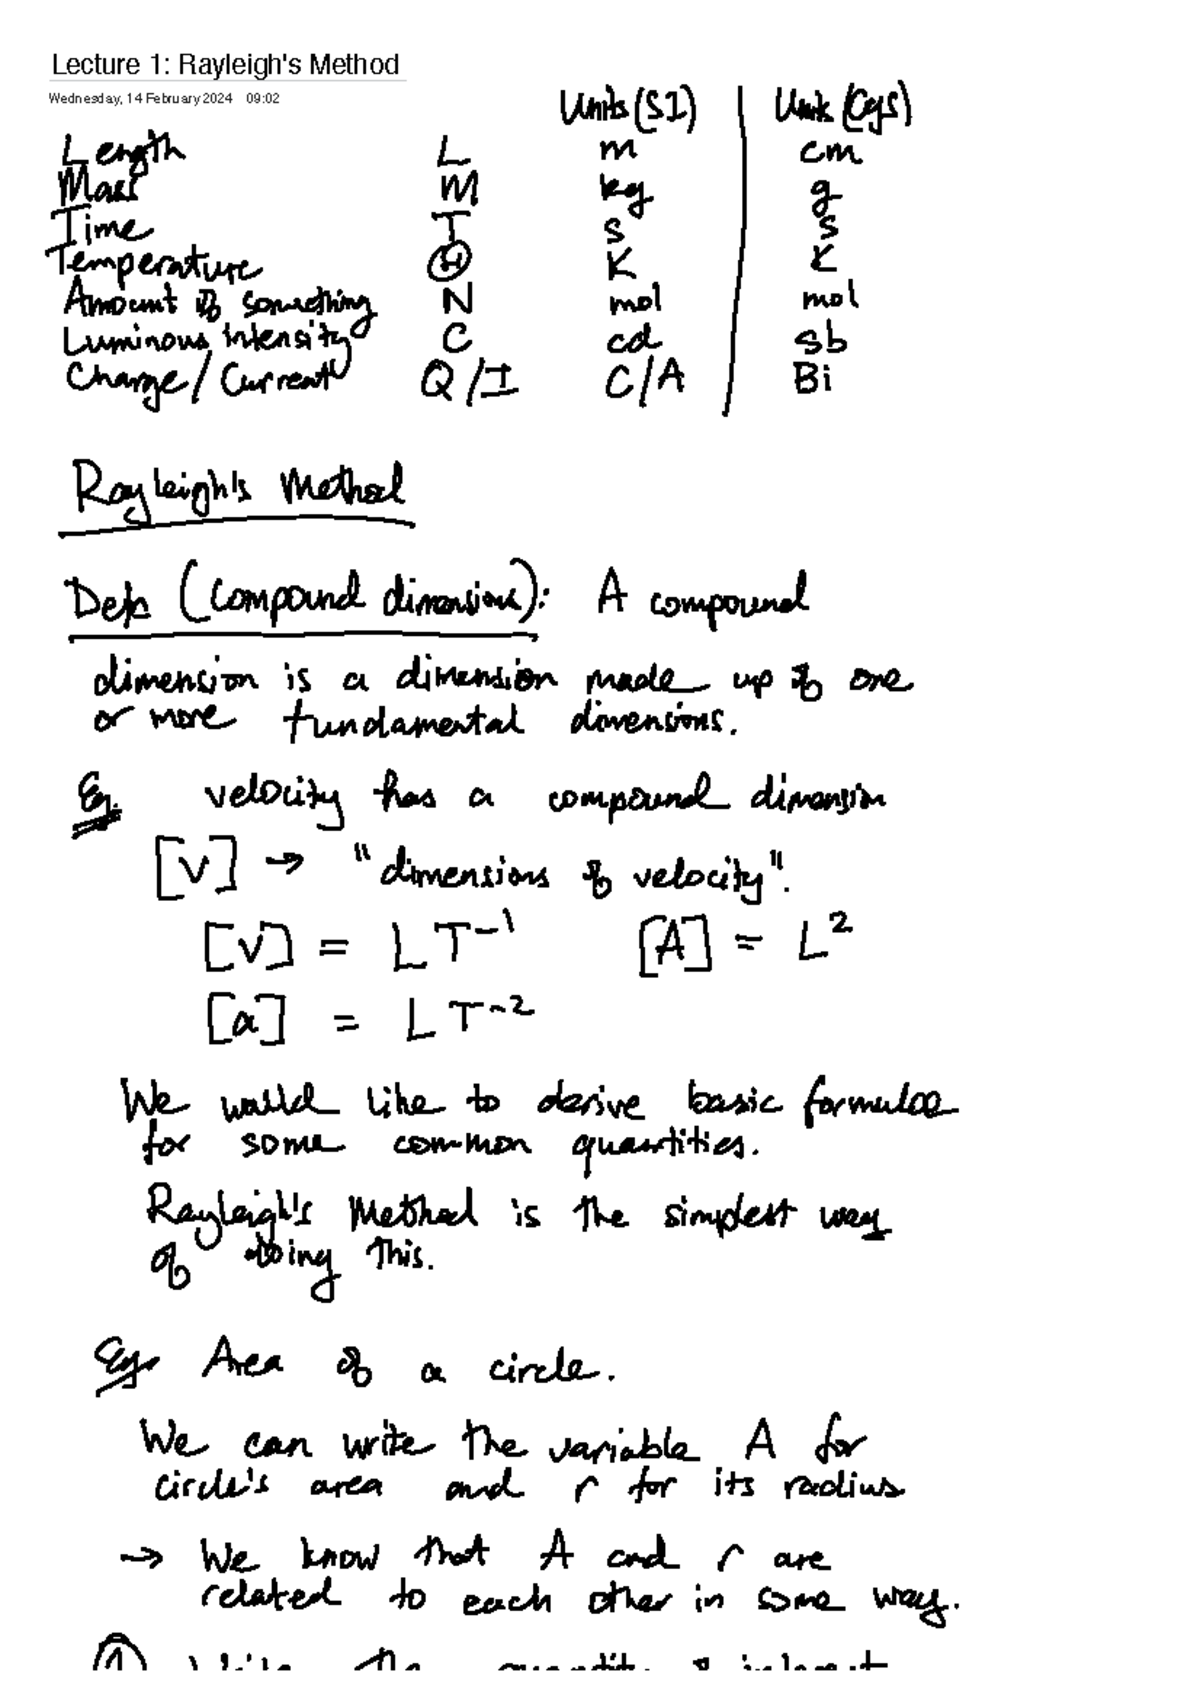 Lecture 1: Rayleigh's Method
Wednesday, 14 February 2024 09:02
Units (SI) Units (Cgs)
Length L m cm
Mass M kg g
Time T s s
Temperature Ⓗ K K
Amount of something N mol mol
Luminous intensity C cd sb
Charge / Current Q / I C/A Bi
Rayleigh's Method
Defn (Compound dimensions): A compound
dimension is a dimension made up of one
or more fundamental dimensions.
Eg. velocity has a compound dimension
[v] → "dimensions of velocity".
[v] = LT⁻¹ [A] = L²
[a] = LT⁻²
We would like to derive basic formulae
for some common quantities.
Rayleigh's Method is the simplest way
of doing this.
Eg. Area of a circle.
We can write the variable A for
circle's area and r for its radius
→ We know that A and r are
related to each other in some way.